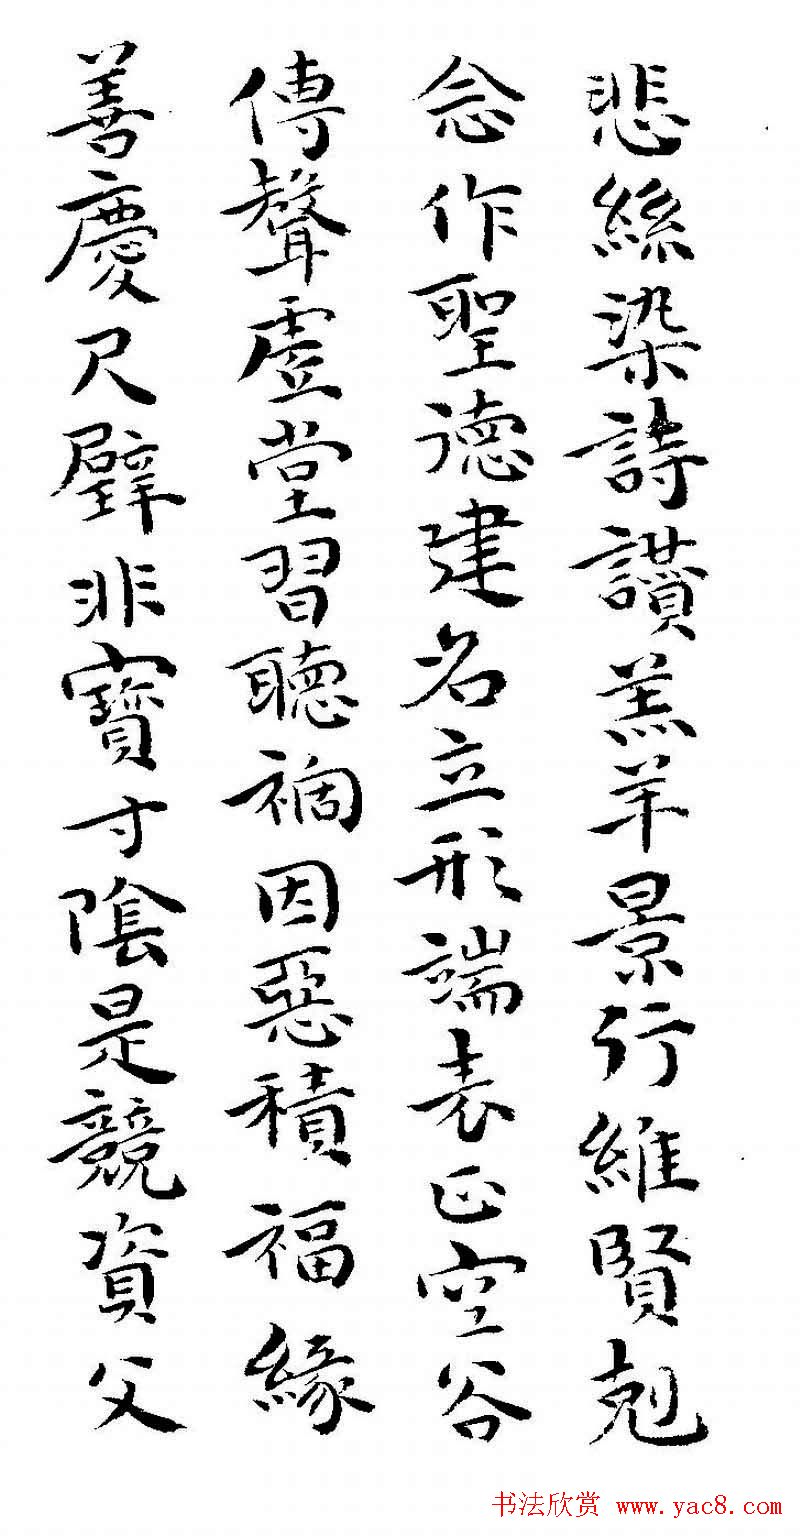 悲絲染詩讚羔羊景行維賢剋
念作聖德建名立形端表正空谷
傳聲虛堂習聽禍因惡積福緣
善慶尺璧非寶寸陰是競資父
书法欣赏 www.yac8.com